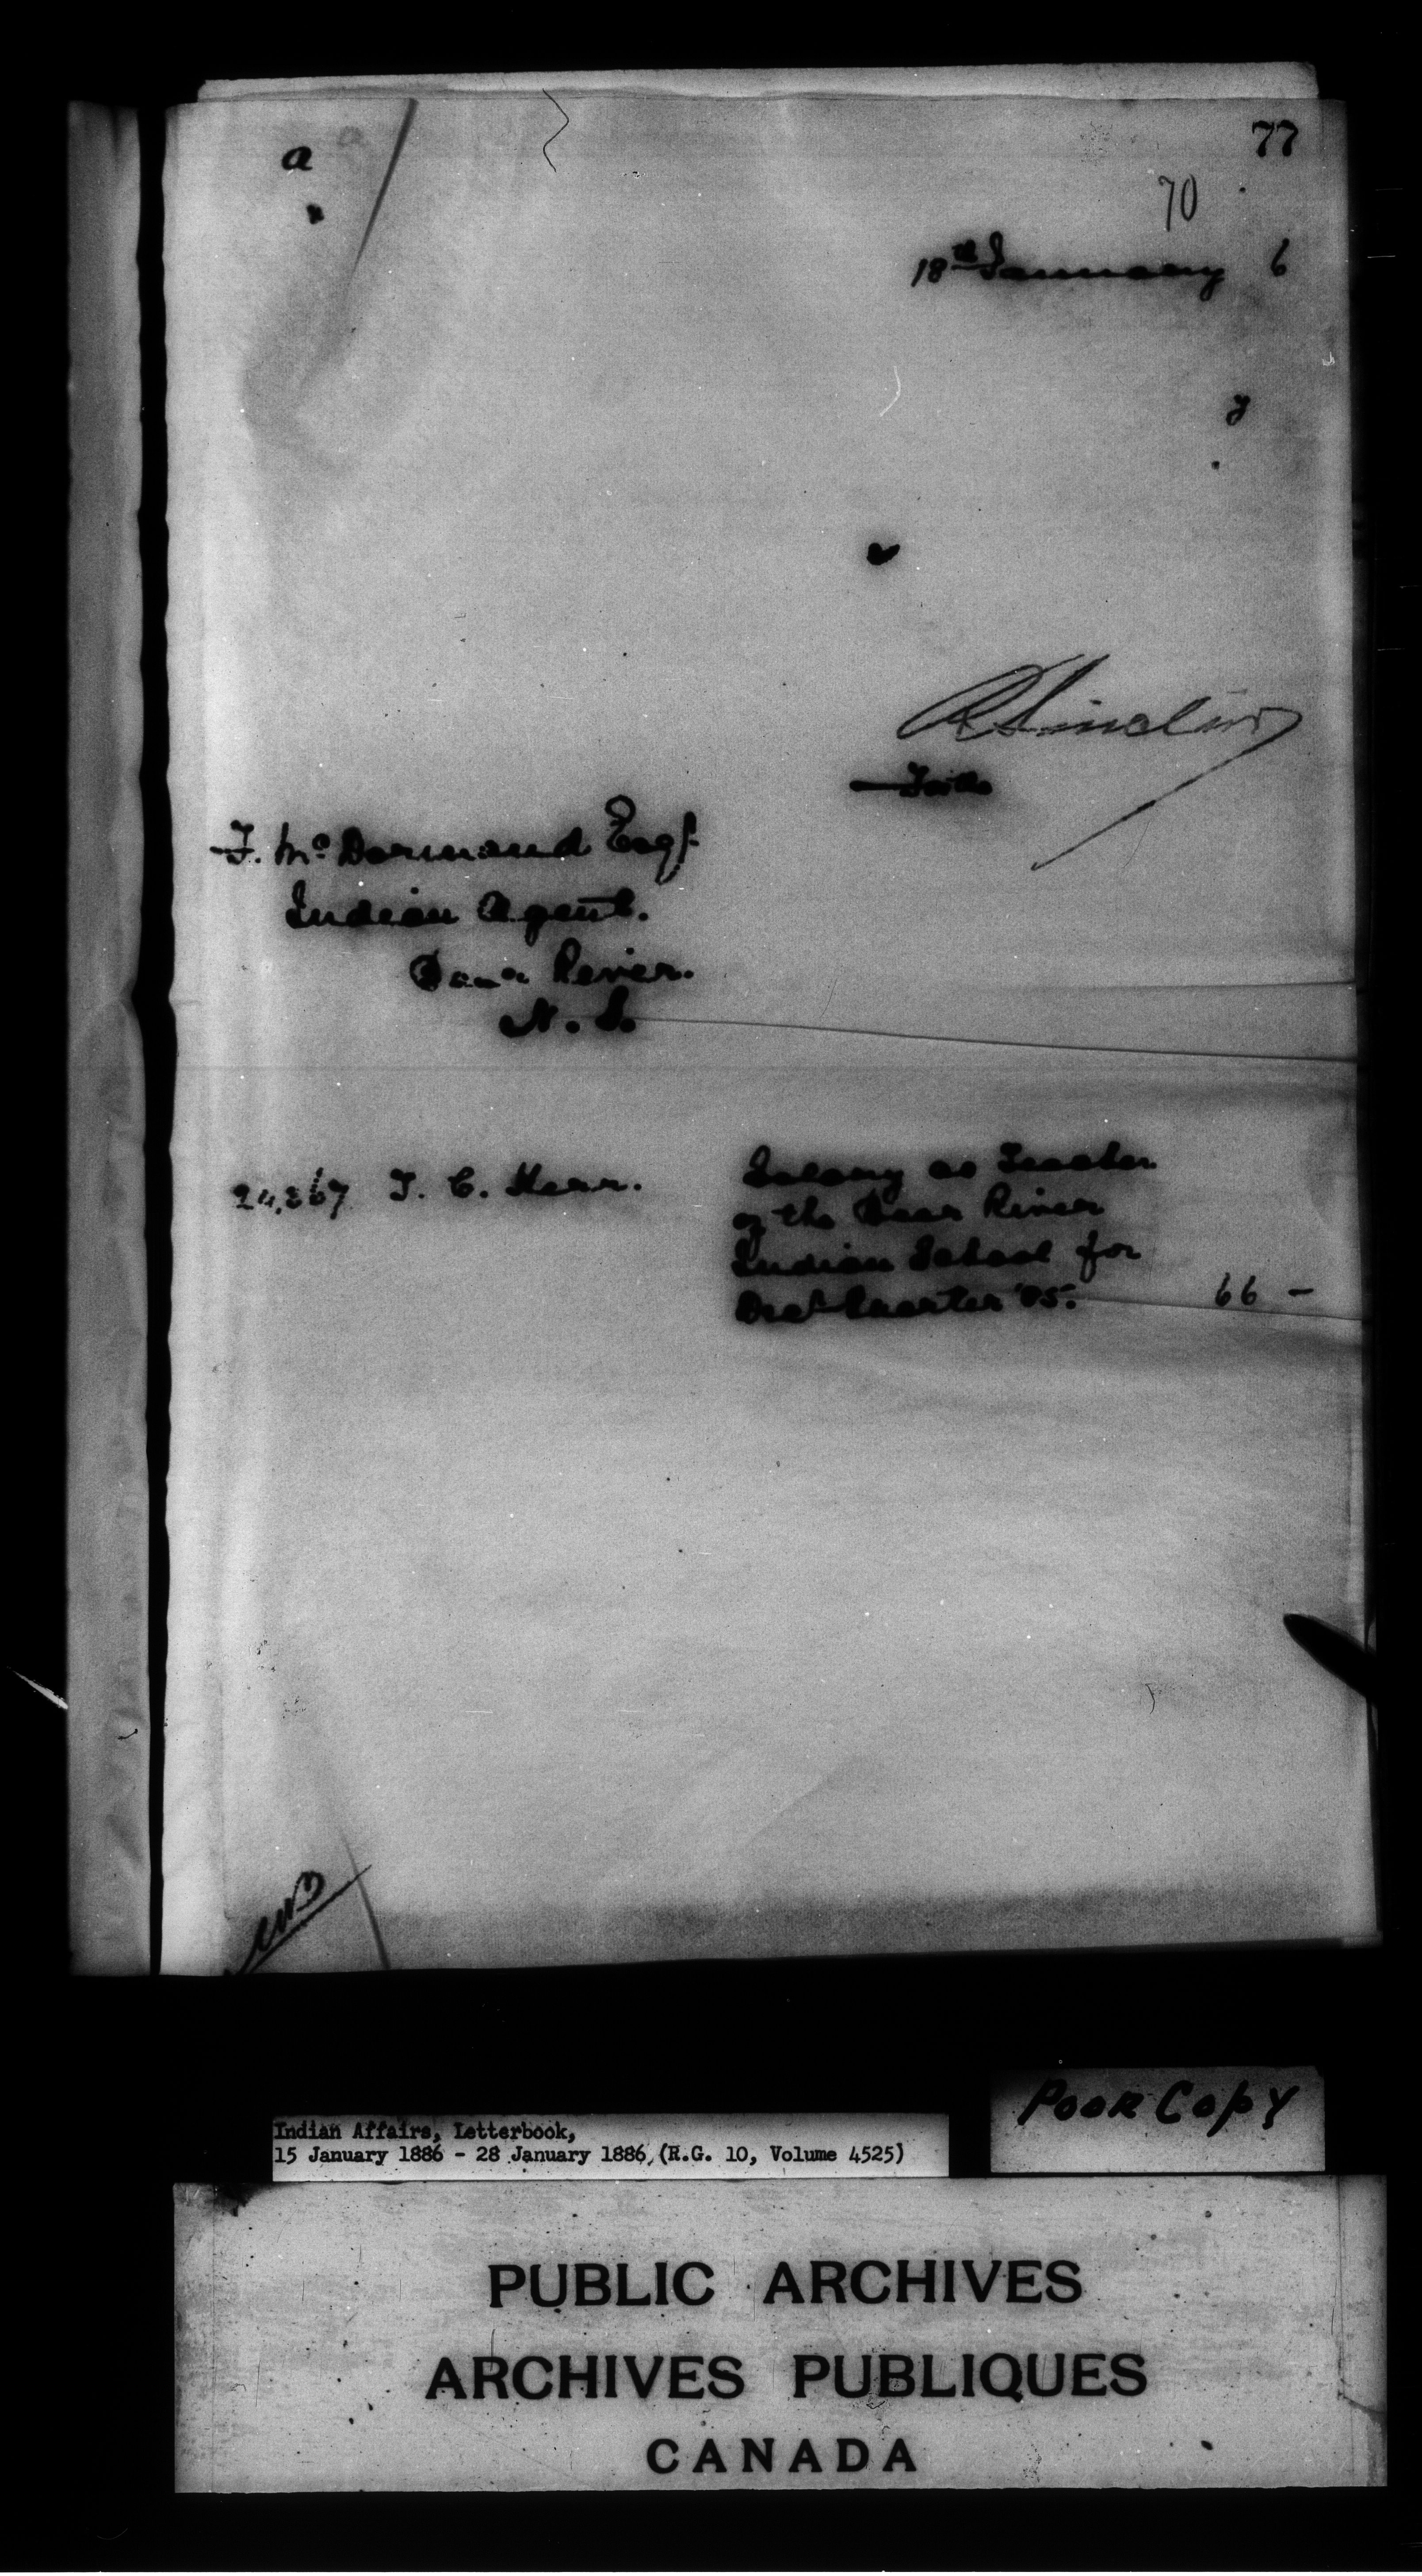 a
77
70
18th January 6
y
R Sinclair
F. McDormand Esqr.
Indian Agent.
Bear River.
N. S.
J. C. Kerr.
Salary as Teacher
of the Bear River
Indian School for
Decr Quarter '85.
66 -
Poor Copy
Indian Affairs, Letterbook,
15 January 1886 - 28 January 1886, (R.G. 10, Volume 4525)
PUBLIC ARCHIVES
ARCHIVES PUBLIQUES
CANADA